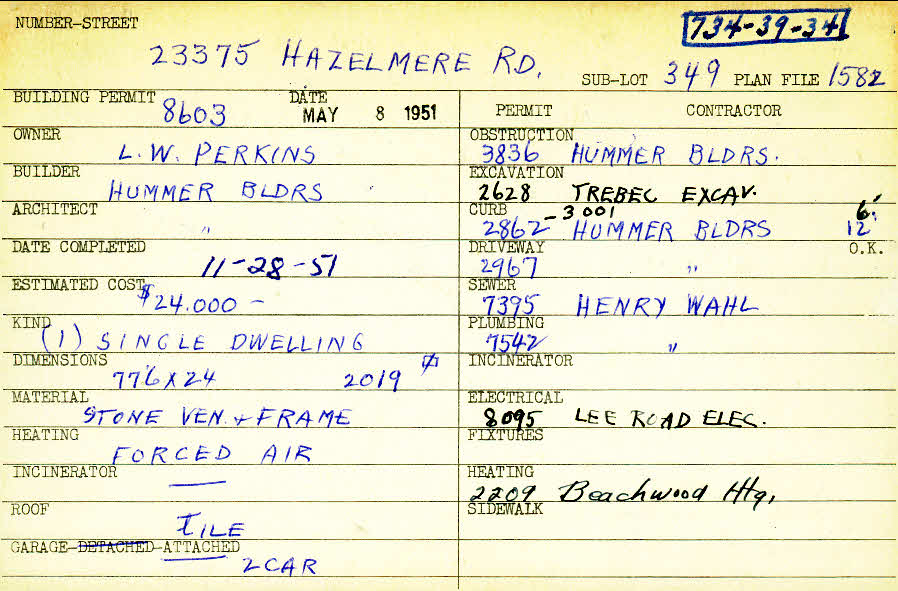 NUMBER-STREET
734-39-34
23375 HAZELMERE RD.
SUB-LOT 349 PLAN FILE 1582
BUILDING PERMIT 8603 DATE MAY 8 1951
OWNER
L.W. PERKINS
BUILDER
HUMMER BLDRS
ARCHITECT
"
DATE COMPLETED
11-28-51
ESTIMATED COST
$24.000 -
KIND
(1) SINGLE DWELLING
DIMENSIONS
77'6 X 24 2019
MATERIAL
STONE VEN. + FRAME
HEATING
FORCED AIR
INCINERATOR
—
ROOF
TILE
GARAGE-DETACHED-ATTACHED
2 CAR
PERMIT CONTRACTOR
OBSTRUCTION
3836 HUMMER BLDRS.
EXCAVATION
2628 TREBEC EXCAV.
CURB
2862-3001 HUMMER BLDRS 12' 6'
DRIVEWAY O.K.
2967 "
SEWER
7395 HENRY WAHL
PLUMBING
7542 "
INCINERATOR
ELECTRICAL
8095 LEE ROAD ELEC.
FIXTURES
HEATING
2209 Beachwood Htg.
SIDEWALK